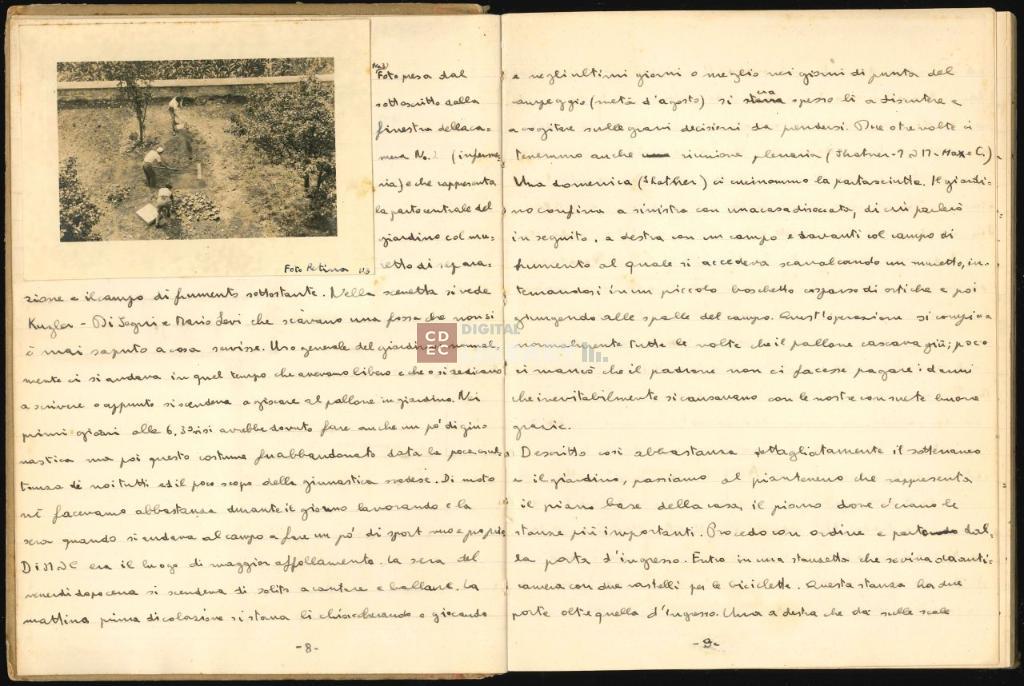 Foto presa dal
sottoscritto dalla
finestra della ca-
mera No. 2 (inferme-
ria) e che rappresenta
la parte centrale del
giardino col mu-
retto di separa-
Foto Retina
zione e il campo di frumento sottostante. Nella scenetta si vede
Kugler - Di Segni e Mario Levi che scavano una fossa che non si
è mai saputo a cosa servisse. Uso generale del giardino: normal-
mente ci si andava in quel tempo che avevamo libero e che o si dedicava
a scrivere o appunto si scendeva a giocare al pallone in giardino. Nei
primi giorni alle 6,30 si avrebbe dovuto fare anche un pò di gin-
nastica ma poi questo costume fu abbandonato data la poca
di noi tutti ed il poco scopo della ginnastica svedese. Di moto
ne facevamo abbastanza durante il giorno lavorando e la
sera quando si andava al campo a fare un pò di sport vero e proprio
era il luogo di maggior affollamento. La sera del
venerdì dopo cena si scendeva di solito a cantare e ballare. La
mattina prima di colazione si stava lì chiacchierando o giocando
-8-
e negli ultimi giorni o meglio nei giorni di punta del
campeggio (metà d'agosto) si stava spesso lì a discutere e
a cogitare sulle gravi decisioni da prendersi. Due o tre volte ci
tenemmo anche riunione plenaria
Una domenica ci cucinammo la pastasciutta. Il giardi-
no confina a sinistra con una casa disociata, di cui parlerò
in seguito, a destra con un campo e davanti col campo di
frumento al quale si accedeva scavalcando un muretto, in-
ternandosi in un piccolo boschetto cosparso di ortiche e poi
giungendo alle spalle del campo. Quest'operazione si compiva
normalmente tutte le volte che il pallone cascava giù; poco
ci mancò che il padrone non ci facesse pagare i danni
che inevitabilmente si causavano con le nostre consuete buone
grazie.
Descritto così abbastanza dettagliatamente il sotterraneo
e il giardino, passiamo al pianterreno che rappresenta
il piano base della casa, il piano dove c'erano le
stanze più importanti. Procedo con ordine e partendo dal-
la porta d'ingresso. Entro in una stanzetta che serviva da anti-
camera con due rastelli per le biciclette. Questa stanza ha due
porte oltre quella d'ingresso. Una a destra che dà sulle scale
-9-
CDEC DIGITAL LIBRARY